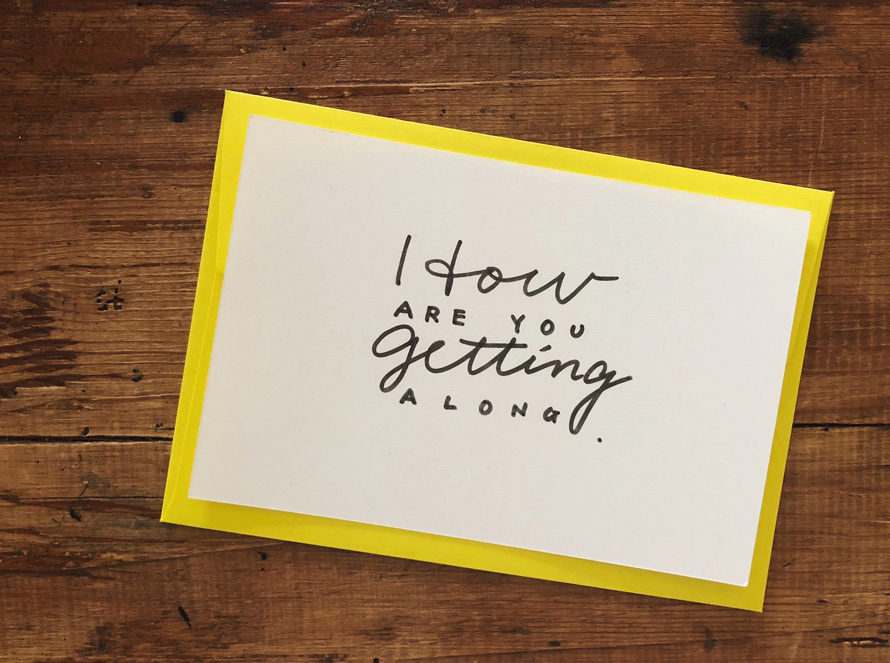 How
ARE YOU
getting
ALONG.